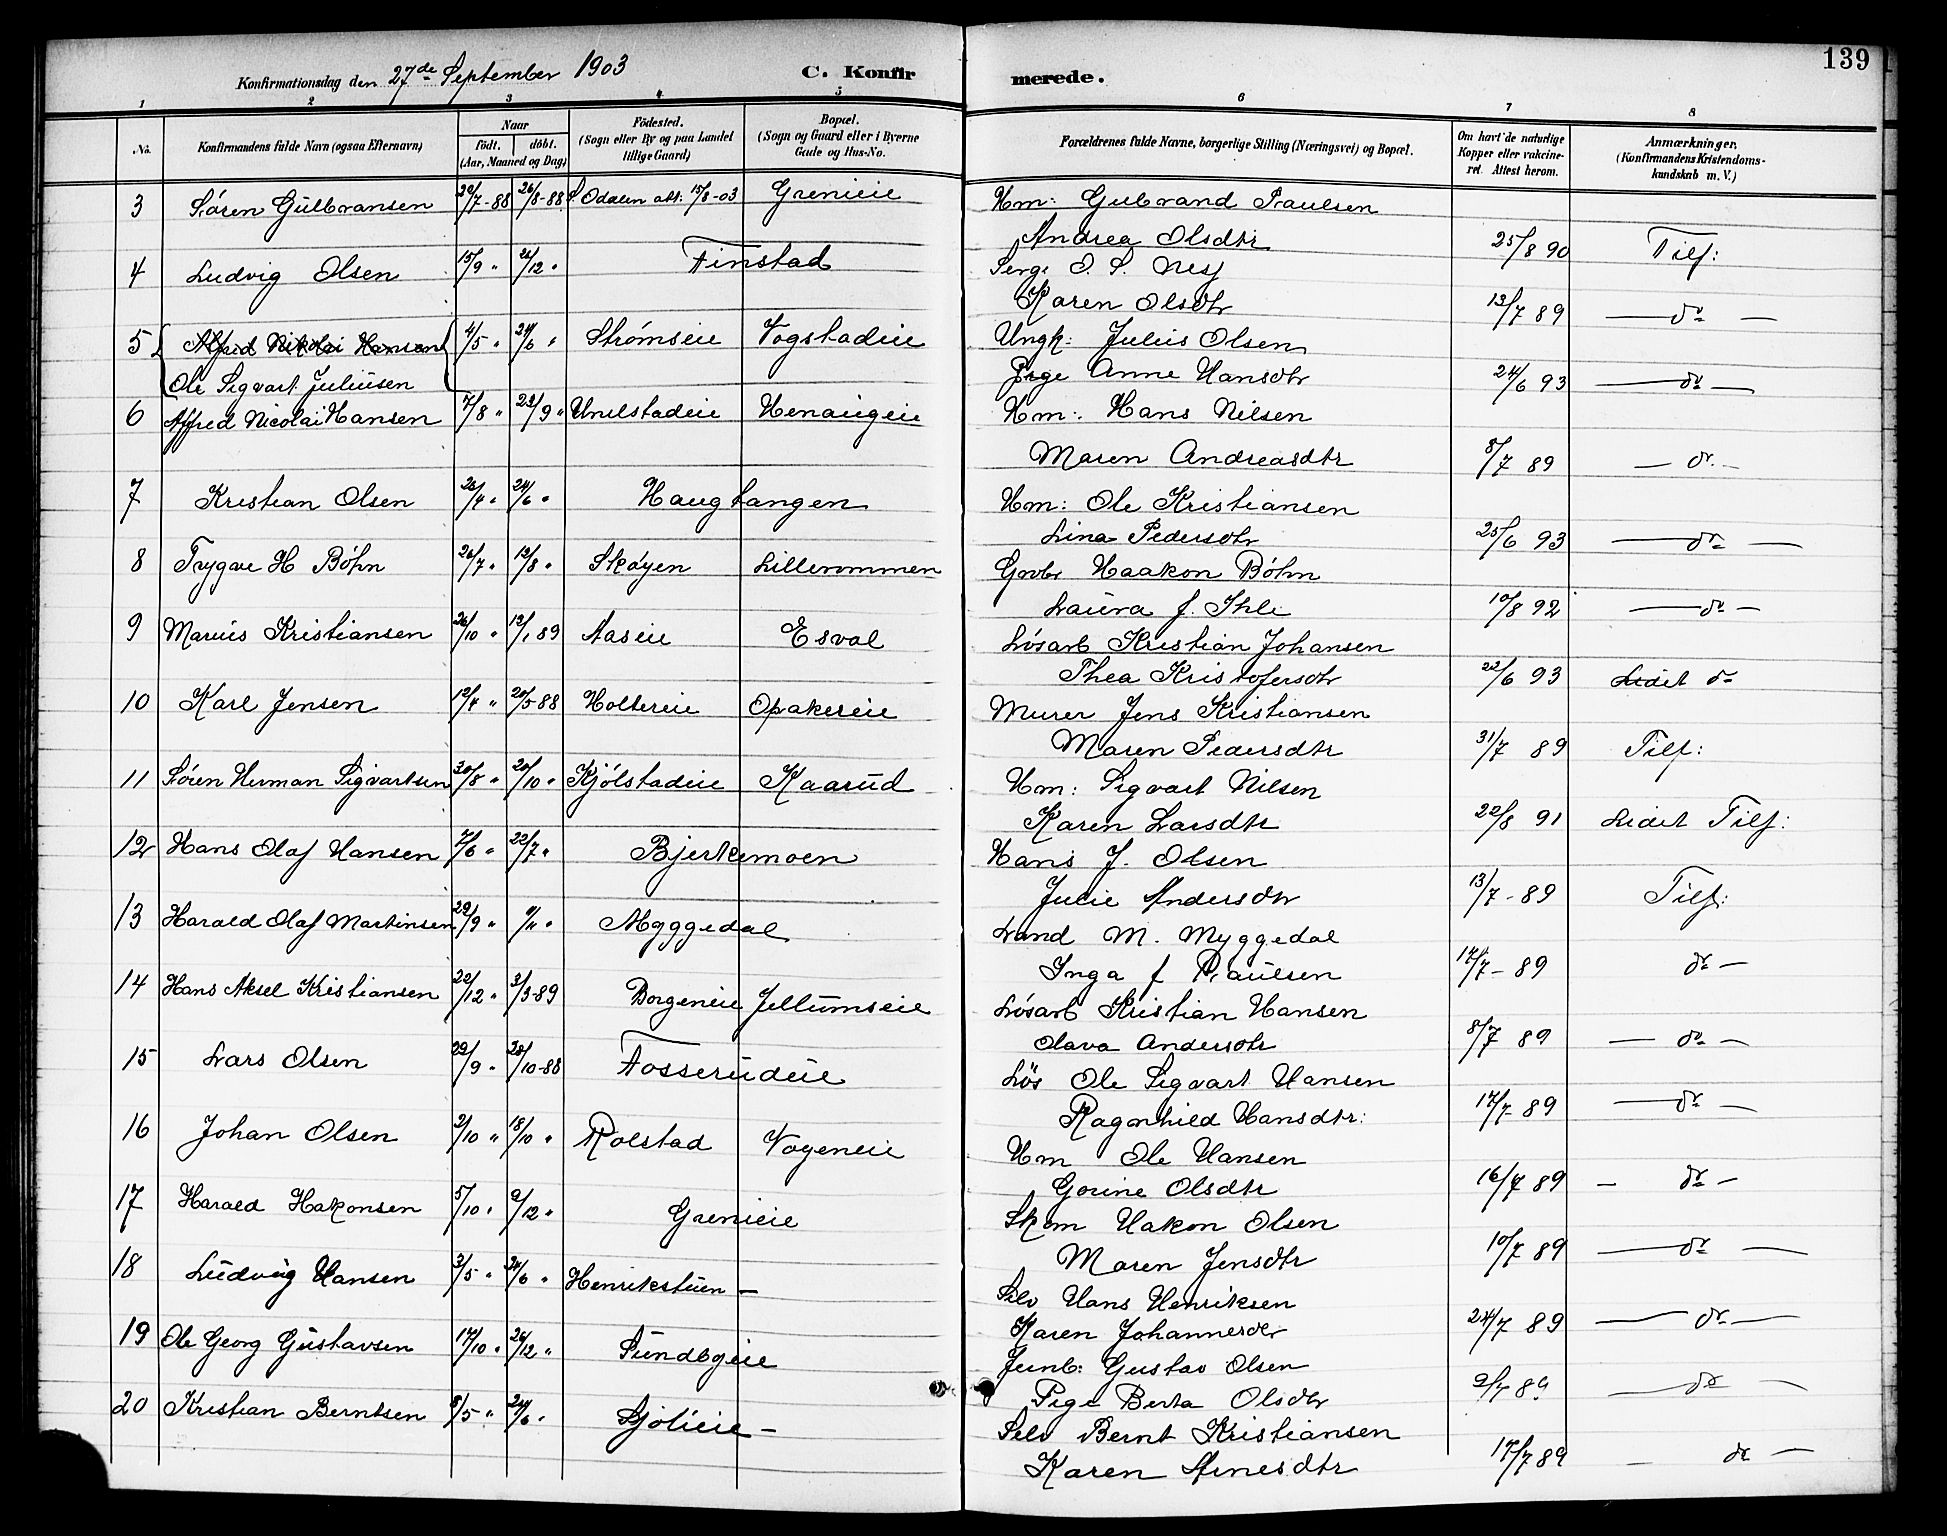 139
Konfirmationsdag den 27de September 1903 C. Konfir merede.
1 2 3 4 5 6 7 8
No. Konfirmandens fulde Navn (ogsaa Efternavn) Naar født. døbt. (Aar, Maaned og Dag) Fødested. (Sogn eller By og paa Landet tillige Gaard) Bopæl. (Sogn og Gaard eller i Byerne Gade og Hus-No. Forældrenes fulde Navne, borgerlige Stilling (Næringsvei) og Bopæl. Om havt de naturlige Kopper eller vakcineret. Attest herom. Anmærkninger. (Konfirmandens Kristendomskundskab m. V.)
3 Søren Gulbransen 29/7-88 26/8-88 S. Odalen att: 15/8-03 Grenieie Hm: Gulbrand Paulsen
Andrea Olsdtr 25/8 90 Tilf:
4 Ludvig Olsen 15/9 " 26/12 " Finstad Serg. O. S. Nesj
Karen Olsdtr 13/7 89 — do —
5 Alfred Nikolai Hansen 4/5 " 24/6 " Strømseie Vogstadeie Ungk: Julius Olsen
Ole Sigvart Juliusen Pige Anne Hansdtr 24/6 93 — do —
6 Alfred Nicolai Hansen 7/8 " 23/9 " Unelstadeie Henaugeie Hm: Hans Nilsen
Maren Andreasdtr 8/7 89 — do —
7 Kristian Olsen 23/4 " 24/6 " Haugtangen Hm: Ole Kristiansen
Lina Pedersdtr 25/6 93 — do —
8 Trygve H Bøhn 26/7 " 19/8 " Skøyen Lillerommen Grdbr Haakon Bøhn
Laura f. Ihle 10/8 92 — do —
9 Marius Kristiansen 26/10 " 13/1 89 Aaseie Esval Løsarb Kristian Johansen
Thea Kristofersdtr 22/6 93 Lidet do
10 Karl Jensen 12/4 " 20/5-88 Holtereie Opakereie Murer Jens Kristiansen
Maren Pedersdtr 31/7 89 Tilf:
11 Søren Herman Sigvartsen 30/8 " 20/10 " Kjølstadeie Kaarud Hm: Sigvart Nilsen
Karen Larsdtr 22/8 91 Lidet Tilf:
12 Hans Olaf Hansen 7/6 " 22/7 " Bjerkemoen Hans J. Olsen
Julie Andersdtr 13/7-89 Tilf:
13 Harald Olaf Martinsen 29/9 " "/11 " Myggedal Land M. Myggedal
Inga f Paulsen 17/7-89 do —
14 Hans Aksel Kristiansen 22/12 " 3/3-89 Borgeneie Jellumseie Løsarb Kristian Hansen
Olava Andersdtr 8/7 89 — do —
15 Lars Olsen 29/9 " 28/10-88 Fosserudeie Løs Ole Sigvart Hansen
Ragnhild Hansdtr: 17/7-89 — do —
16 Johan Olsen 2/10 " 18/10 " Rolstad Vogeneie Hm Ole Hansen
Gorine Olsdtr 16/7 89 — do —
17 Harald Hakonsen 5/10 " 9/12 " Grenieie Skom Hakon Olsen
Maren Jensdtr 10/7 89 — do —
18 Ludvig Hansen 3/5 " 24/6 " Henrikstuen — Selv Hans Henriksen
Karen Johannesdtr 24/7 89 — do —
19 Ole Georg Gustavsen 17/10 " 26/12 " Sundbyeie Jernb: Gustav Olsen
Pige Berta Olsdtr 9/7 89 — do —
20 Kristian Berntsen 8/5 " 24/6 " Sjølieie — Selv Bernt Kristiansen
Karen Arnesdtr 17/7 89 — do —